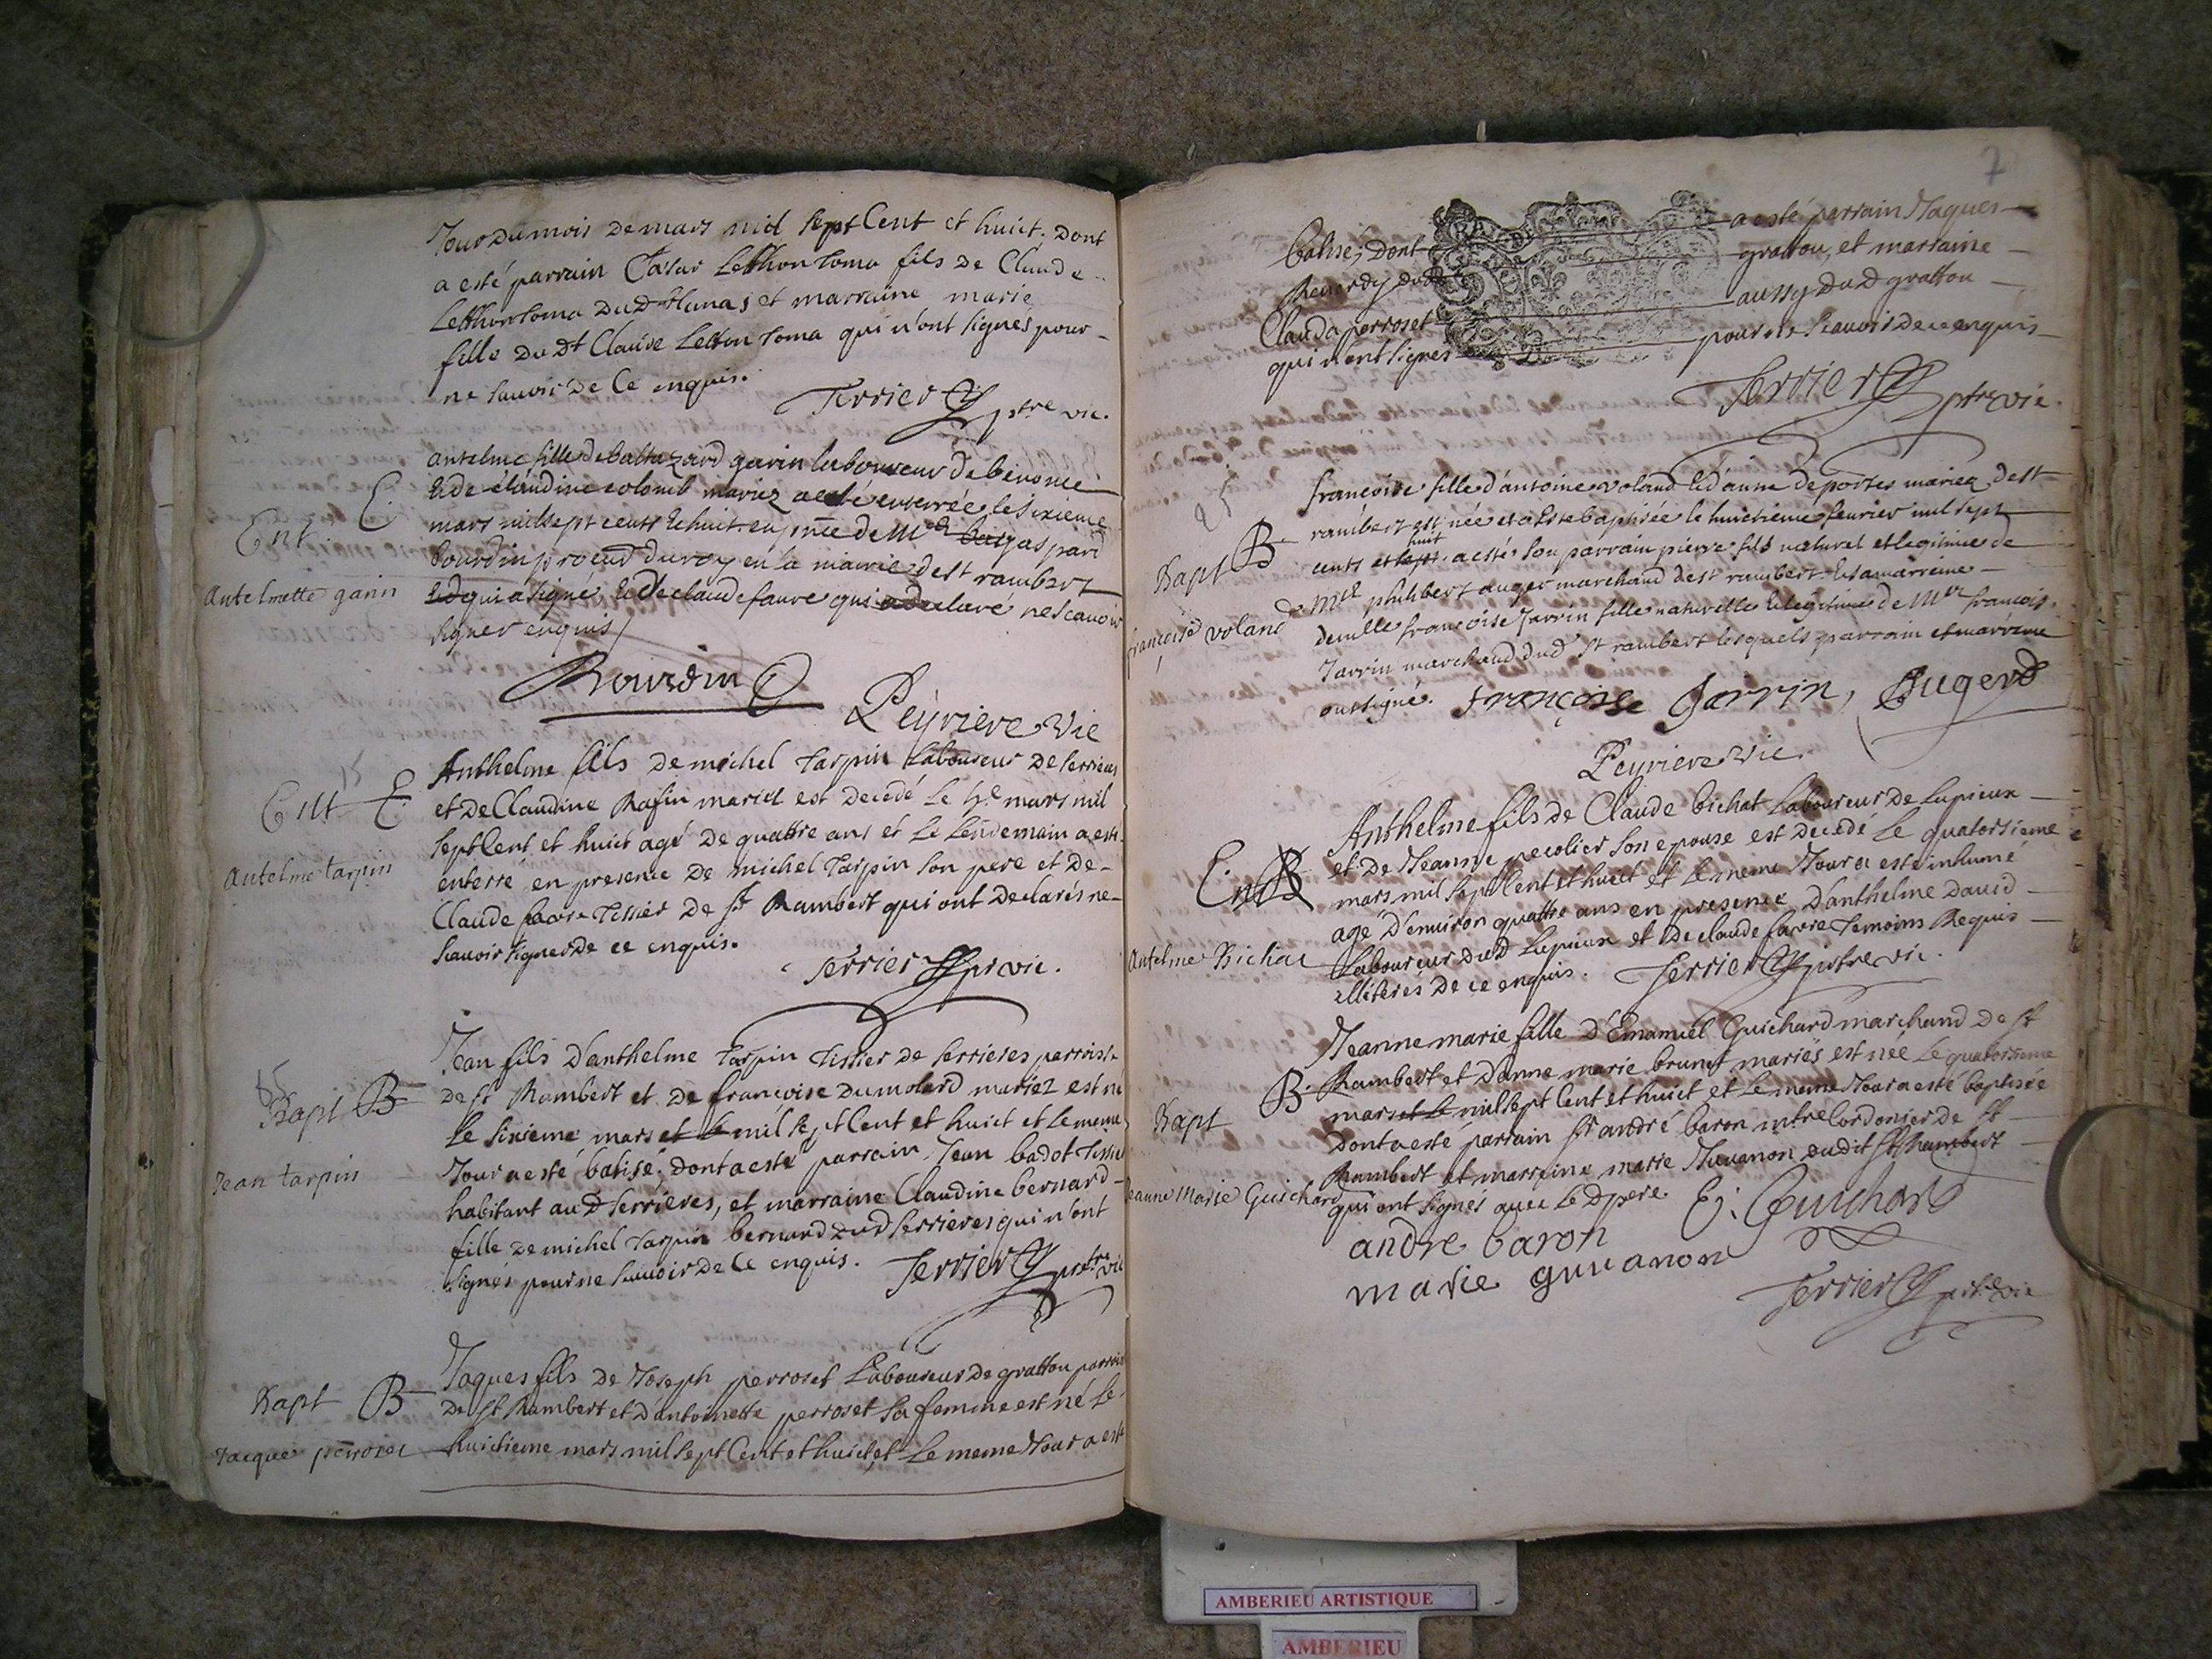 Jour du mois de mars mil sept Cent et huict. Dont
a esté parrain Cesar Letthontoma fils de Claude
Letthontoma dud et marraine marie
fille du dt Claude Letthontoma qui n'ont signés pour
ne sauoir de Ce enquis.
Terrier ptre vic.
Ent. E.
Antelmette garin
antelme fille de baltazard garin laboureur de benonce
et de claudine colomb mariez a esté enterrée le sixieme
mars mil sept cents et huit en pnce de Mre gaspard
bourdin procur du roy en la mairie de st rambert
qui a signé et de claude faure qui a declaré ne scauoir
signer enquis
Bourdin
Peyriere vic
Ent E.
Antelme tarpin
Anthelme fils de michel tarpin laboureur de serrieres
et de Claudine Rafin mariez est decedé le 4e mars mil
sept Cent et huict agé de quattre ans et le lendemain a esté
enterré en presence de michel Tarpin son pere et de
Claude favre Tissier de St Rambert qui ont declarés ne
scauoir signer de ce enquis.
Terrier ptr vic.
Bapt B
Jean tarpin
Jean fils d'anthelme Tarpin Tissier de serrieres parroisse
de St Rambert et de françoise dumolard mariez est né
le sixieme mars et le mil sept Cent et huict et le meme
Jour a esté batisé; dont a esté parrain Jean badot Tissier
habitant aud serrieres, et marraine Claudine bernard
fille de michel Tarpin bernard dud serrieres qui n'ont
signés pour ne scauoir de Ce enquis. Terrier ptre vic
Bapt B
Jacque perroset
Jaques fils de Joseph perroset Laboureur de grattou parroisse
de St Rambert et d'antoinette perroset sa femme est né le
huictieme mars mil sept Cent et huict, et le meme Jour a esté
7
batisé; Dont a esté parrain Jaques
Reuerdy dud grattou, et marraine
Clauda perroset aussy dud grattou
qui n'ont signés pour ne scauoir de ce enquis
Terrier ptre vic.
25
Bapt B
françoise voland
francoise fille d'antoine voland et d'anne deportes mariea de st
rambert est née et a este baptisée le huictieme feurier mil sept
cents et sept huit a esté son parrain pierre fils naturel et legitime de
Mre philibert auger marchand de st rambert et sa marreine
demlle francoise Jarrin fille naturelle et legitime de Mre francois
Jarrin marchand dud St rambert lesquels parrain et marreine
ont signé. Françoise Jarrin, Augerd
Peyriere vic.
Ent B
Antelme Bichat
Anthelme fils de Claude bichat Laboureur de Lupieux
et de Jeanne pecolier son epouse est decedé le quatorsieme
mars mil sept Cent et huict et le meme Jour a esté inhumé
agé d'enuiron quattre ans en presence d'anthelme dauid
laboureur dud Lupieux et de claude favre Temoins Requis
illiterés de ce enquis. Terrier ptre vic.
Bapt B.
Jeanne Marie Guichard
Jeanne marie fille d'Emanuel Guichard marchand de St
Rambert et d'anne marie brunet mariés est née le quatorsieme
mars et le mil sept Cent et huict et le meme Jour a esté baptisée
dont a esté parrain Sr andré baron mtre Cordonier de St
Rambert et marraine marie Juuanon dudit St Rambert
qui ont signés auec le d pere. E. Guichard
andre baron
marie guuanon
Terrier ptre vic
AMBERIEU ARTISTIQUE
AMBERIEU